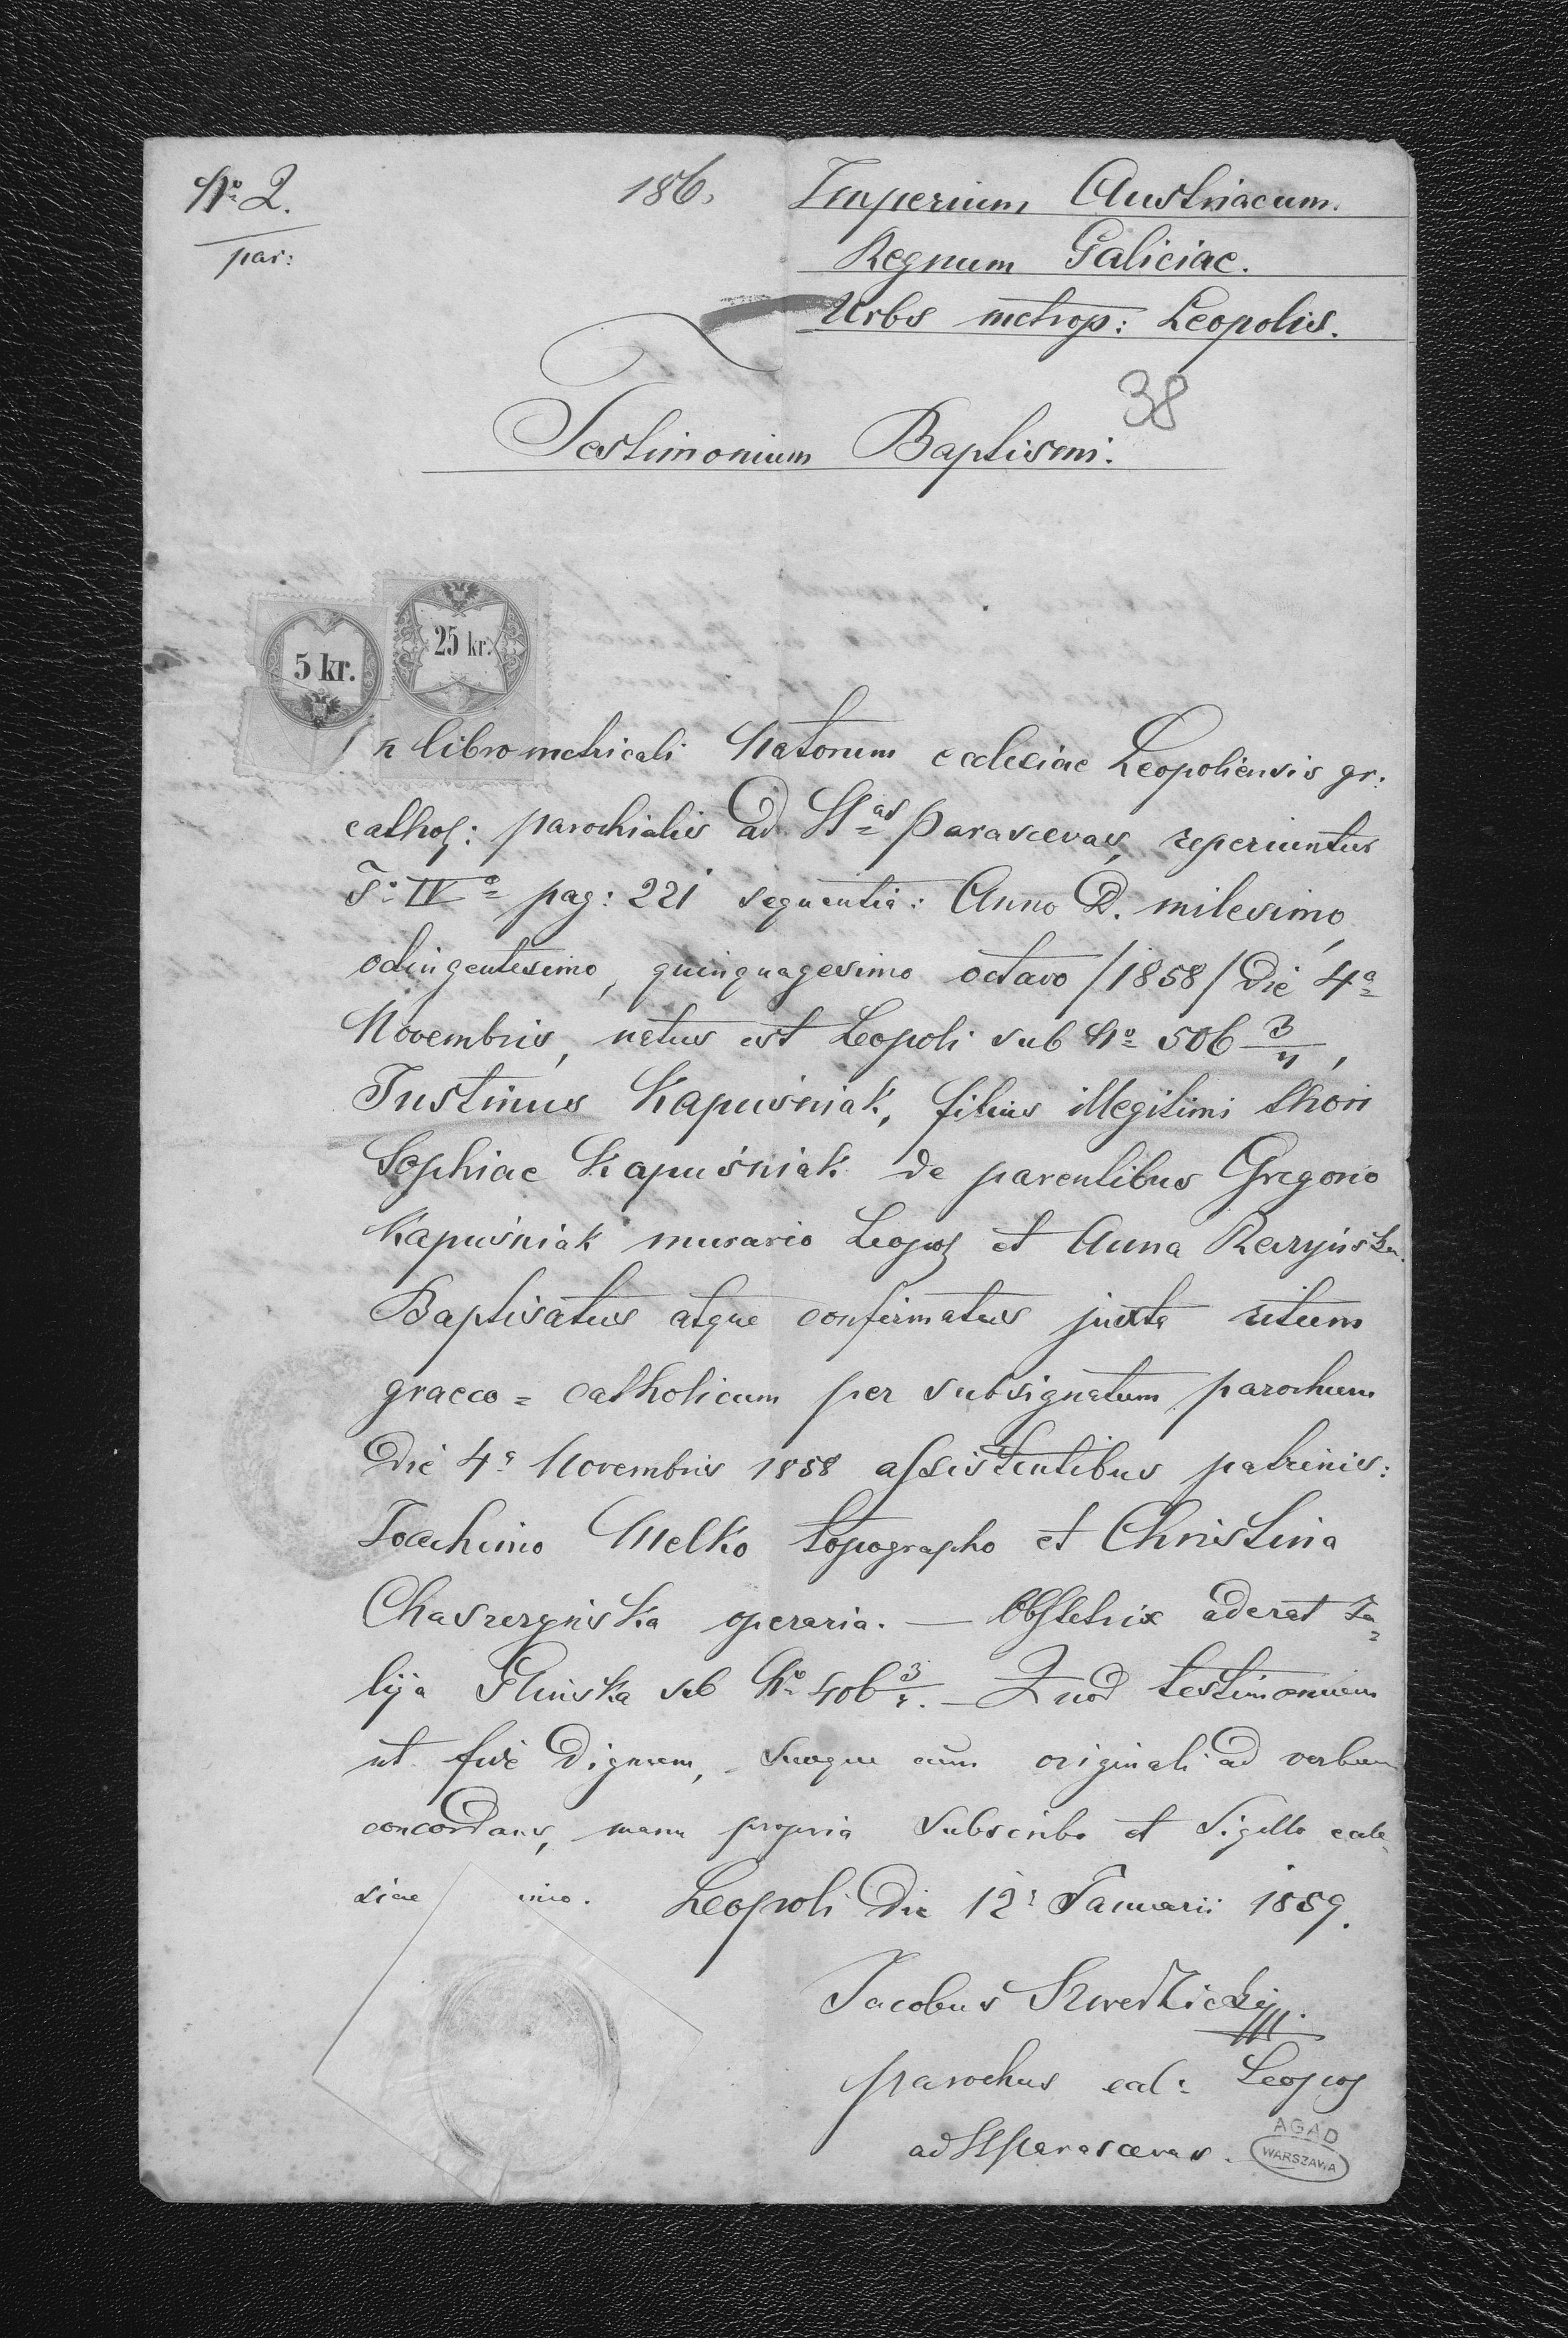 No 2.
par:
186.
Imperium Austriacum.
Regnum Galiciae.
Urbs metrop: Leopolis.
38
Testimonium Baptismi.
5 kr.
25 kr.
In libro metricali Natorum ecclesiae Leopoliensis gr:
cathol: parochialis ad Stas Parascevas, reperiuntur
T: IVo pag: 221 sequentia: Anno D. milesimo,
octingentesimo, quinquagesimo octavo /1858/ die 4a
Novembris, natus est Leopoli sub No 506 3/4,
Justinus Kapuśniak, filius illegitimi thori
Sophiae Kapuśniak de parentibus Gregorio
Kapuśniak murario Leopol et Anna
Baptisatus atque confirmatus juxta ritum
graeco = catholicum per subsignatum parochum
die 4a Novembris 1858 assistentibus patrinis:
Joachimo Melko topographo et Christina
Chaszczyńska operaria. — Obstetrix aderat
lija Glinska sub No 406 3/4. — Quod testimonium
ut fide dignum, suoque cum originali ad verbum
concordans, manu propria subscribo et sigillo eccle
siae Leopoli die 12a Januarii 1859.
Jacobus Szwedzicki
parochus Leopol
ad St Parascevas.
AGAD
WARSZAWA